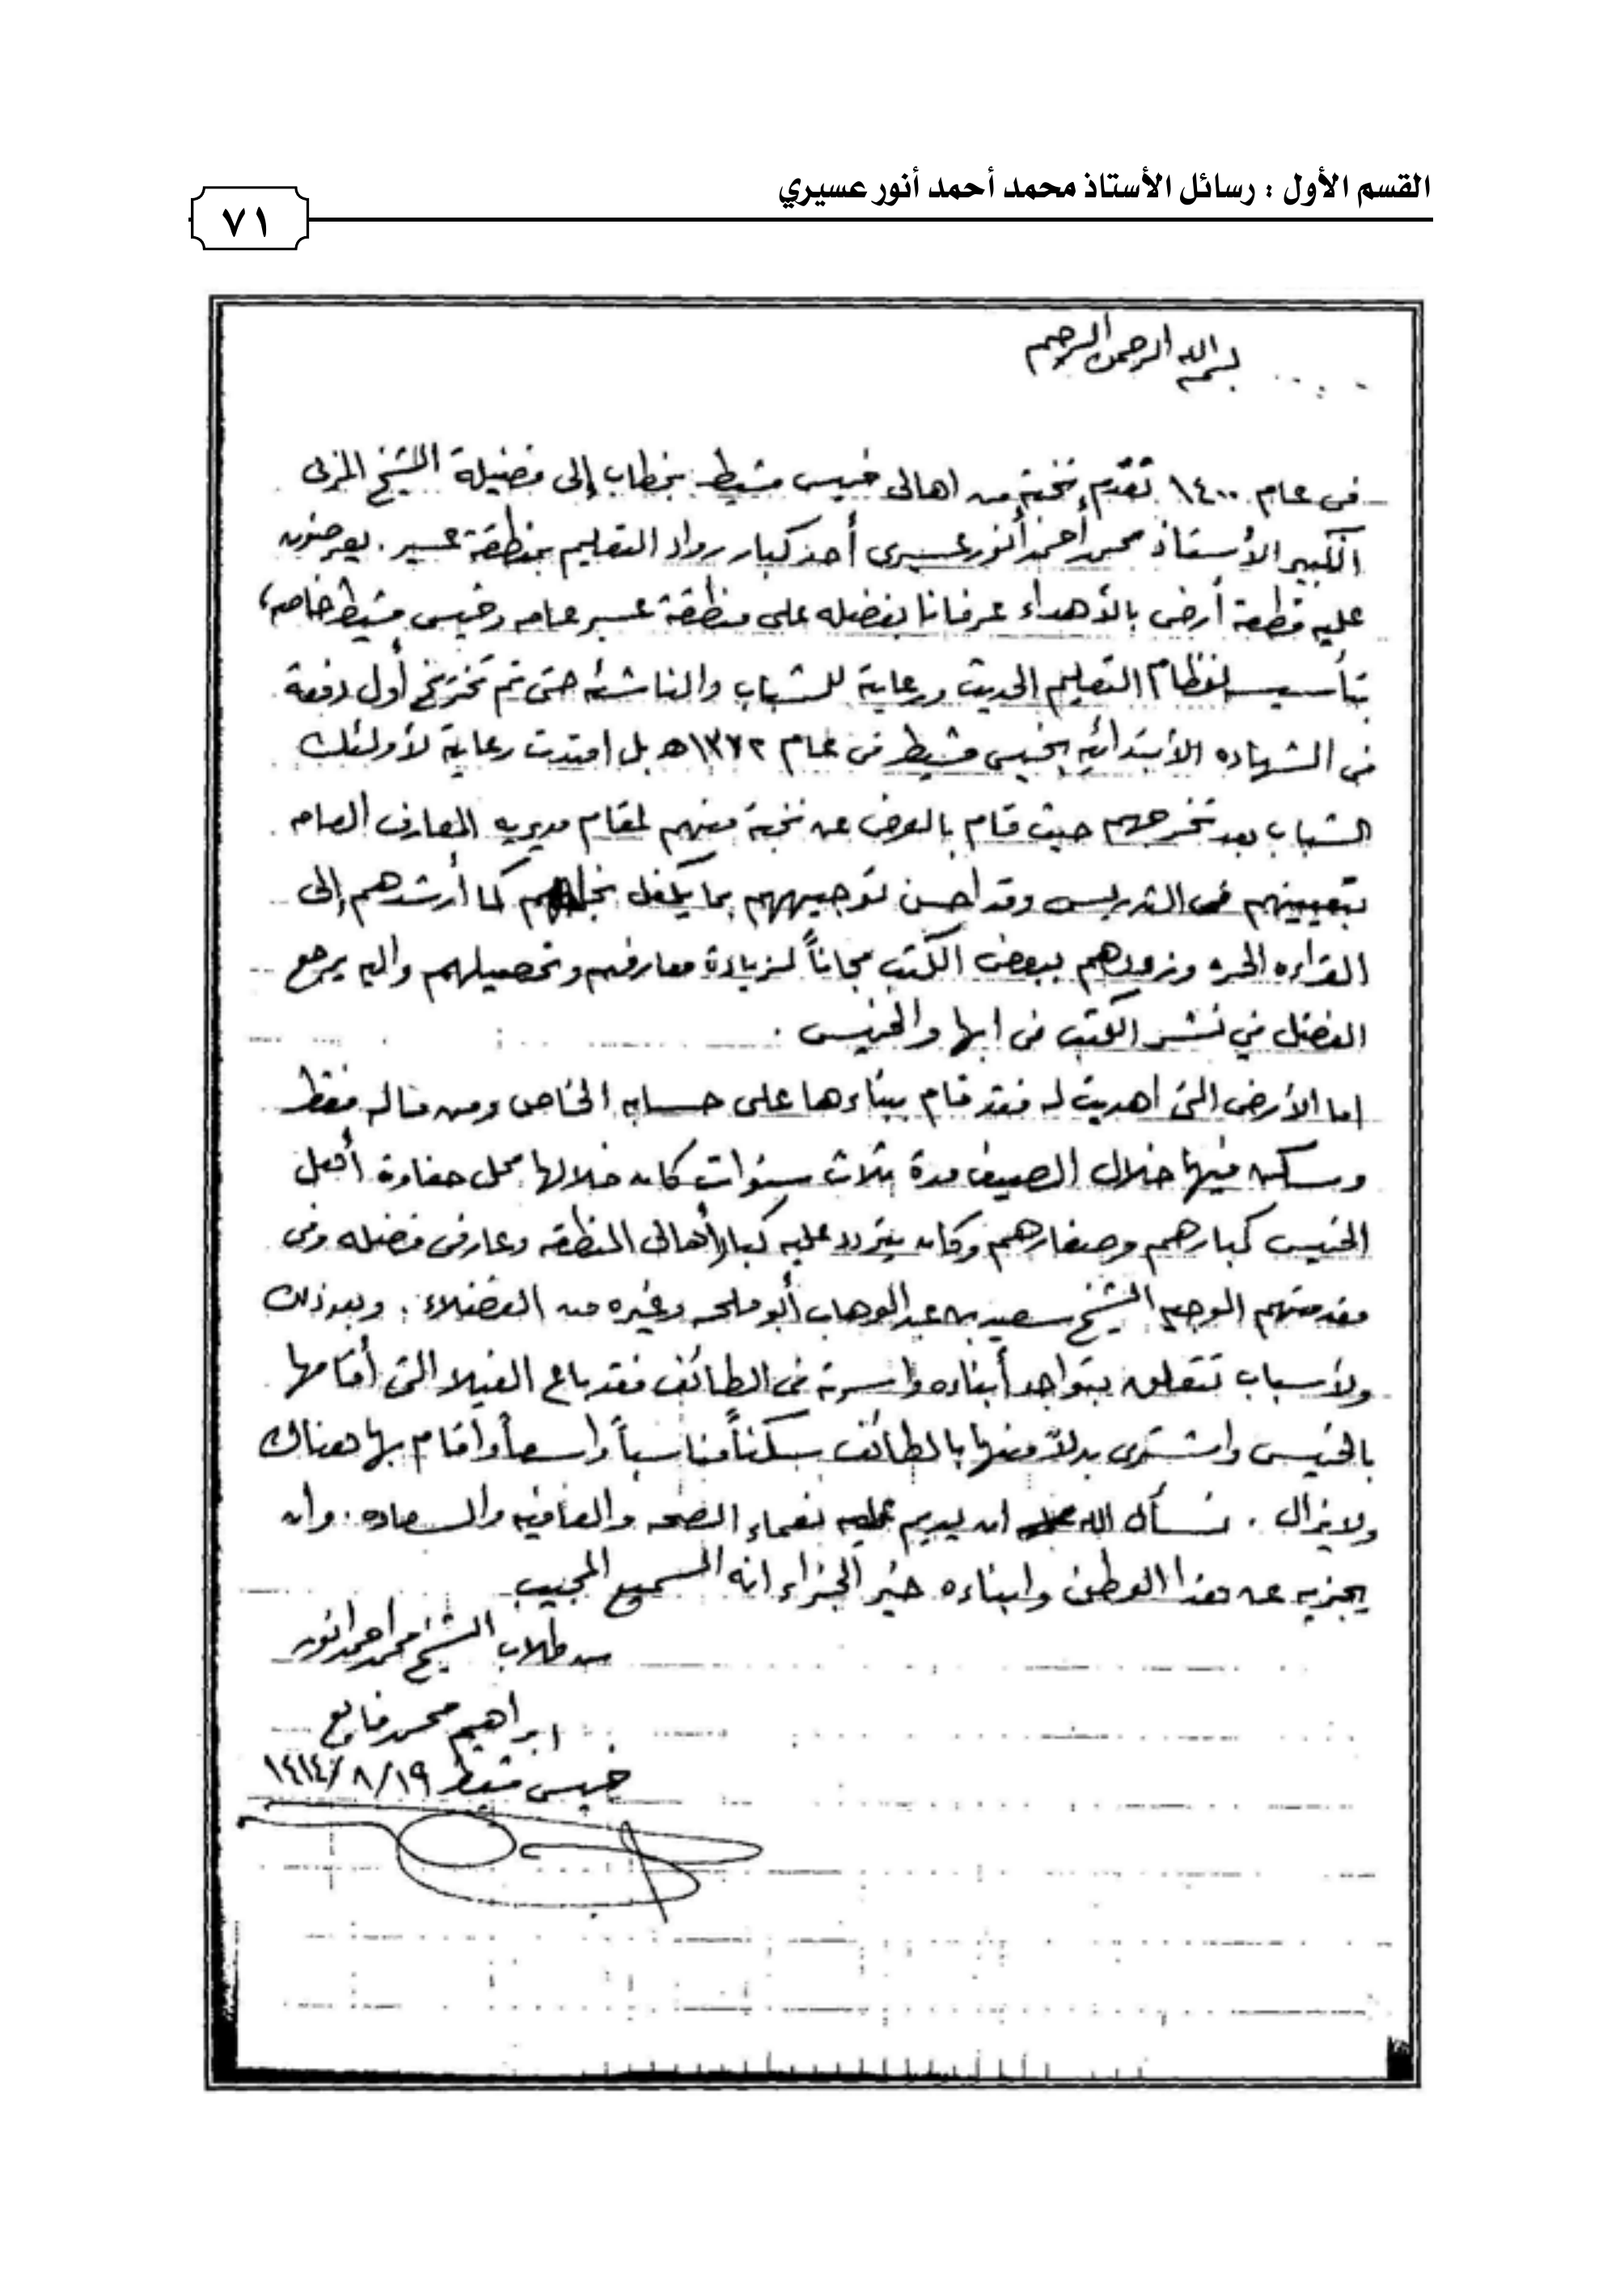 القسم الأول : رسائل الأستاذ محمد أحمد أنور عسيري
٧١
بسم الله الرحمن الرحيم
فى عام ١٤٠٠ تقدم نخبة من اهالى خميس مشيط بخطاب إلى فضيلة الشيخ المربى
الكبير الأستاذ محمد أحمد أنور عسيرى أحد كبار رواد التعليم بمنطقة عسير . يعرضون
عليه قطعة أرض بالأهداء عرفانا بفضله على منطقة عسير عامه وخميس مشيط خاصه،
بتأسيس لنظام التعليم الحديث ورعاية للشباب والناشئه حتى تم تخريج أول دفعة
فى الشهاده الأبتدائيه بخميس مشيط فى عام ١٣٧٢هـ بل امتدت رعاية لأولئك
الشباب بعد تخرجهم حيث قام بالعرض عن نخبة منهم لمقام مديريه المعارف العامه .
بتعيينهم فى التدريس وقد احسن توجيههم بما يكفل نجاحهم كما أرشدهم إلى
القراءه الحره وزودهم ببعض الكتب مجاناً لزيادة معارفهم وتحصيلهم واليه يرجع
الفضل في نشر الكتب فى ابها والخميس .
اما الأرض التى اهديت له فقد قام ببناءها على حسابه الخاص ومن ماله فقط
وسكن فيها خلال الصيف مدة ثلاث سنوات كان خلالها محل حفاوة أهل
الخميس كبارهم وصغارهم وكان يتردد عليه كبار أهالى المنطقه وعارفى فضله وفى
مقدمتهم الوجيه الشيخ سعيد بن عبدالوهاب أبو ملحه وغيره من الفضلاء . وبعد ذلك
ولأسباب تتعلق بتواجد أبناءه واسرته فى الطائف فقد باع الفيلا التى أقامها
بالخميس واشترى بدلاً منها بالطائف سكناً مناسباً واسعاً واقام بها هناك
ولايزال . نسأل الله ان يديم عليه نعماء الصحه والعافيه والسعاده . وان
يجزيه عن هذا الوطن وابناءه خير الجزاء انه السميع المجيب
من طلاب الشيخ محمد احمد انور
ابراهيم محمد فايع
خميس مشيط ١٤١٤/٨/١٩